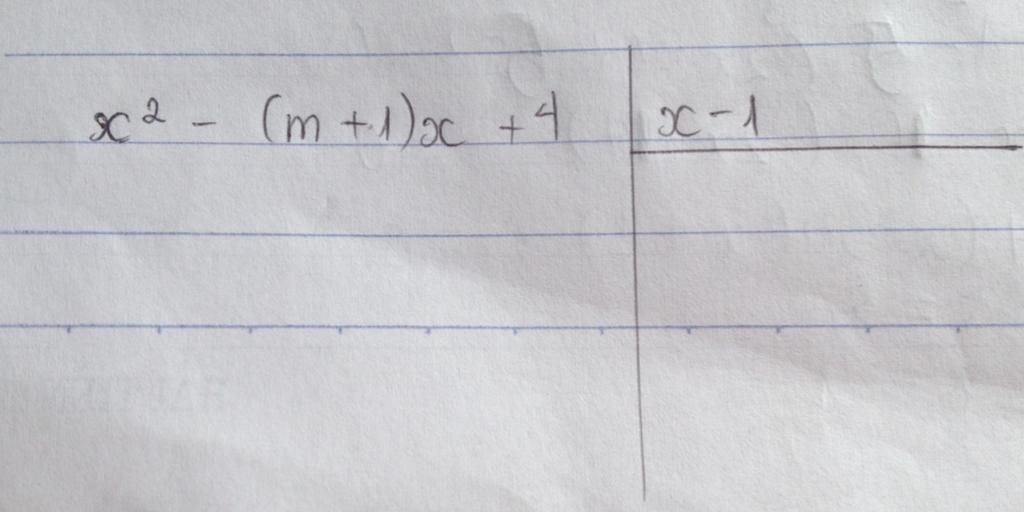 x² - (m+1)x + 4 | x - 1